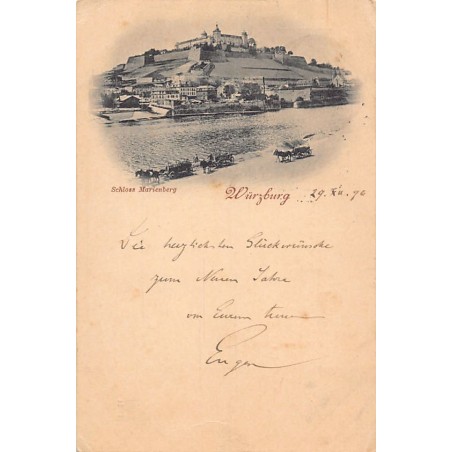 Schloss Marienberg
Würzburg 29. XII. 90
Die herzlichsten Glückwünsche
zum Neuen Jahre
von Eurem treuen
Eugen